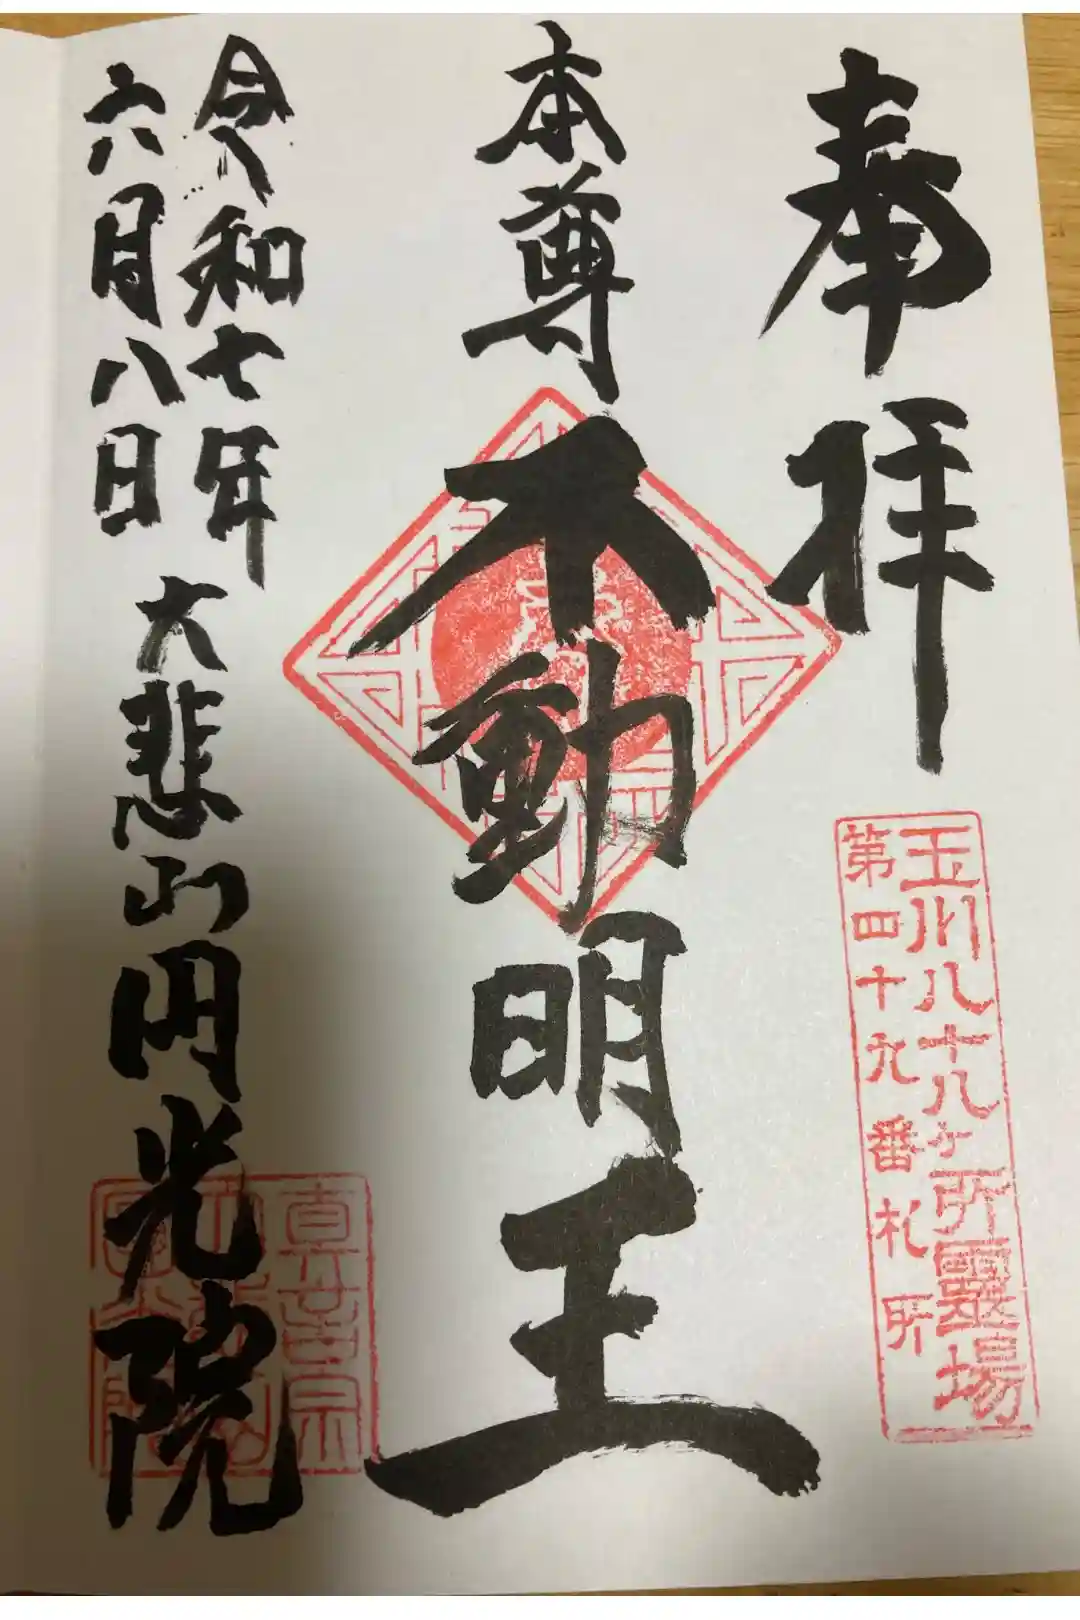 奉拝
玉川八十八ヶ所霊場
第四十九番札所
本尊
不動明王
令和七年
六月八日
大悲山円光院
真言宗